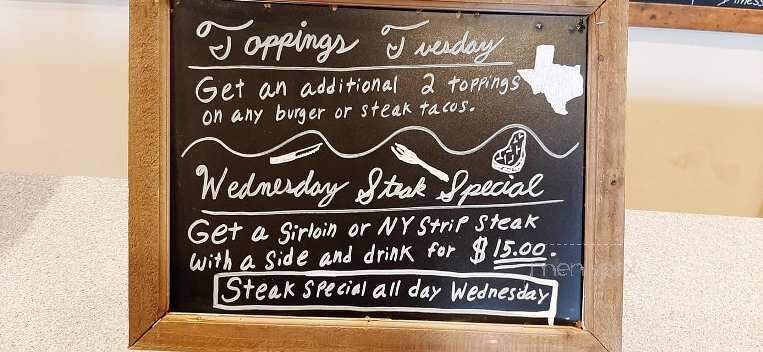 Toppings Tuesday
Get an additional 2 toppings
on any burger or steak tacos.
Wednesday Steak Special
Get a Sirloin or NY Strip Steak
with a side and drink for $15.00.
Steak Special all day Wednesday